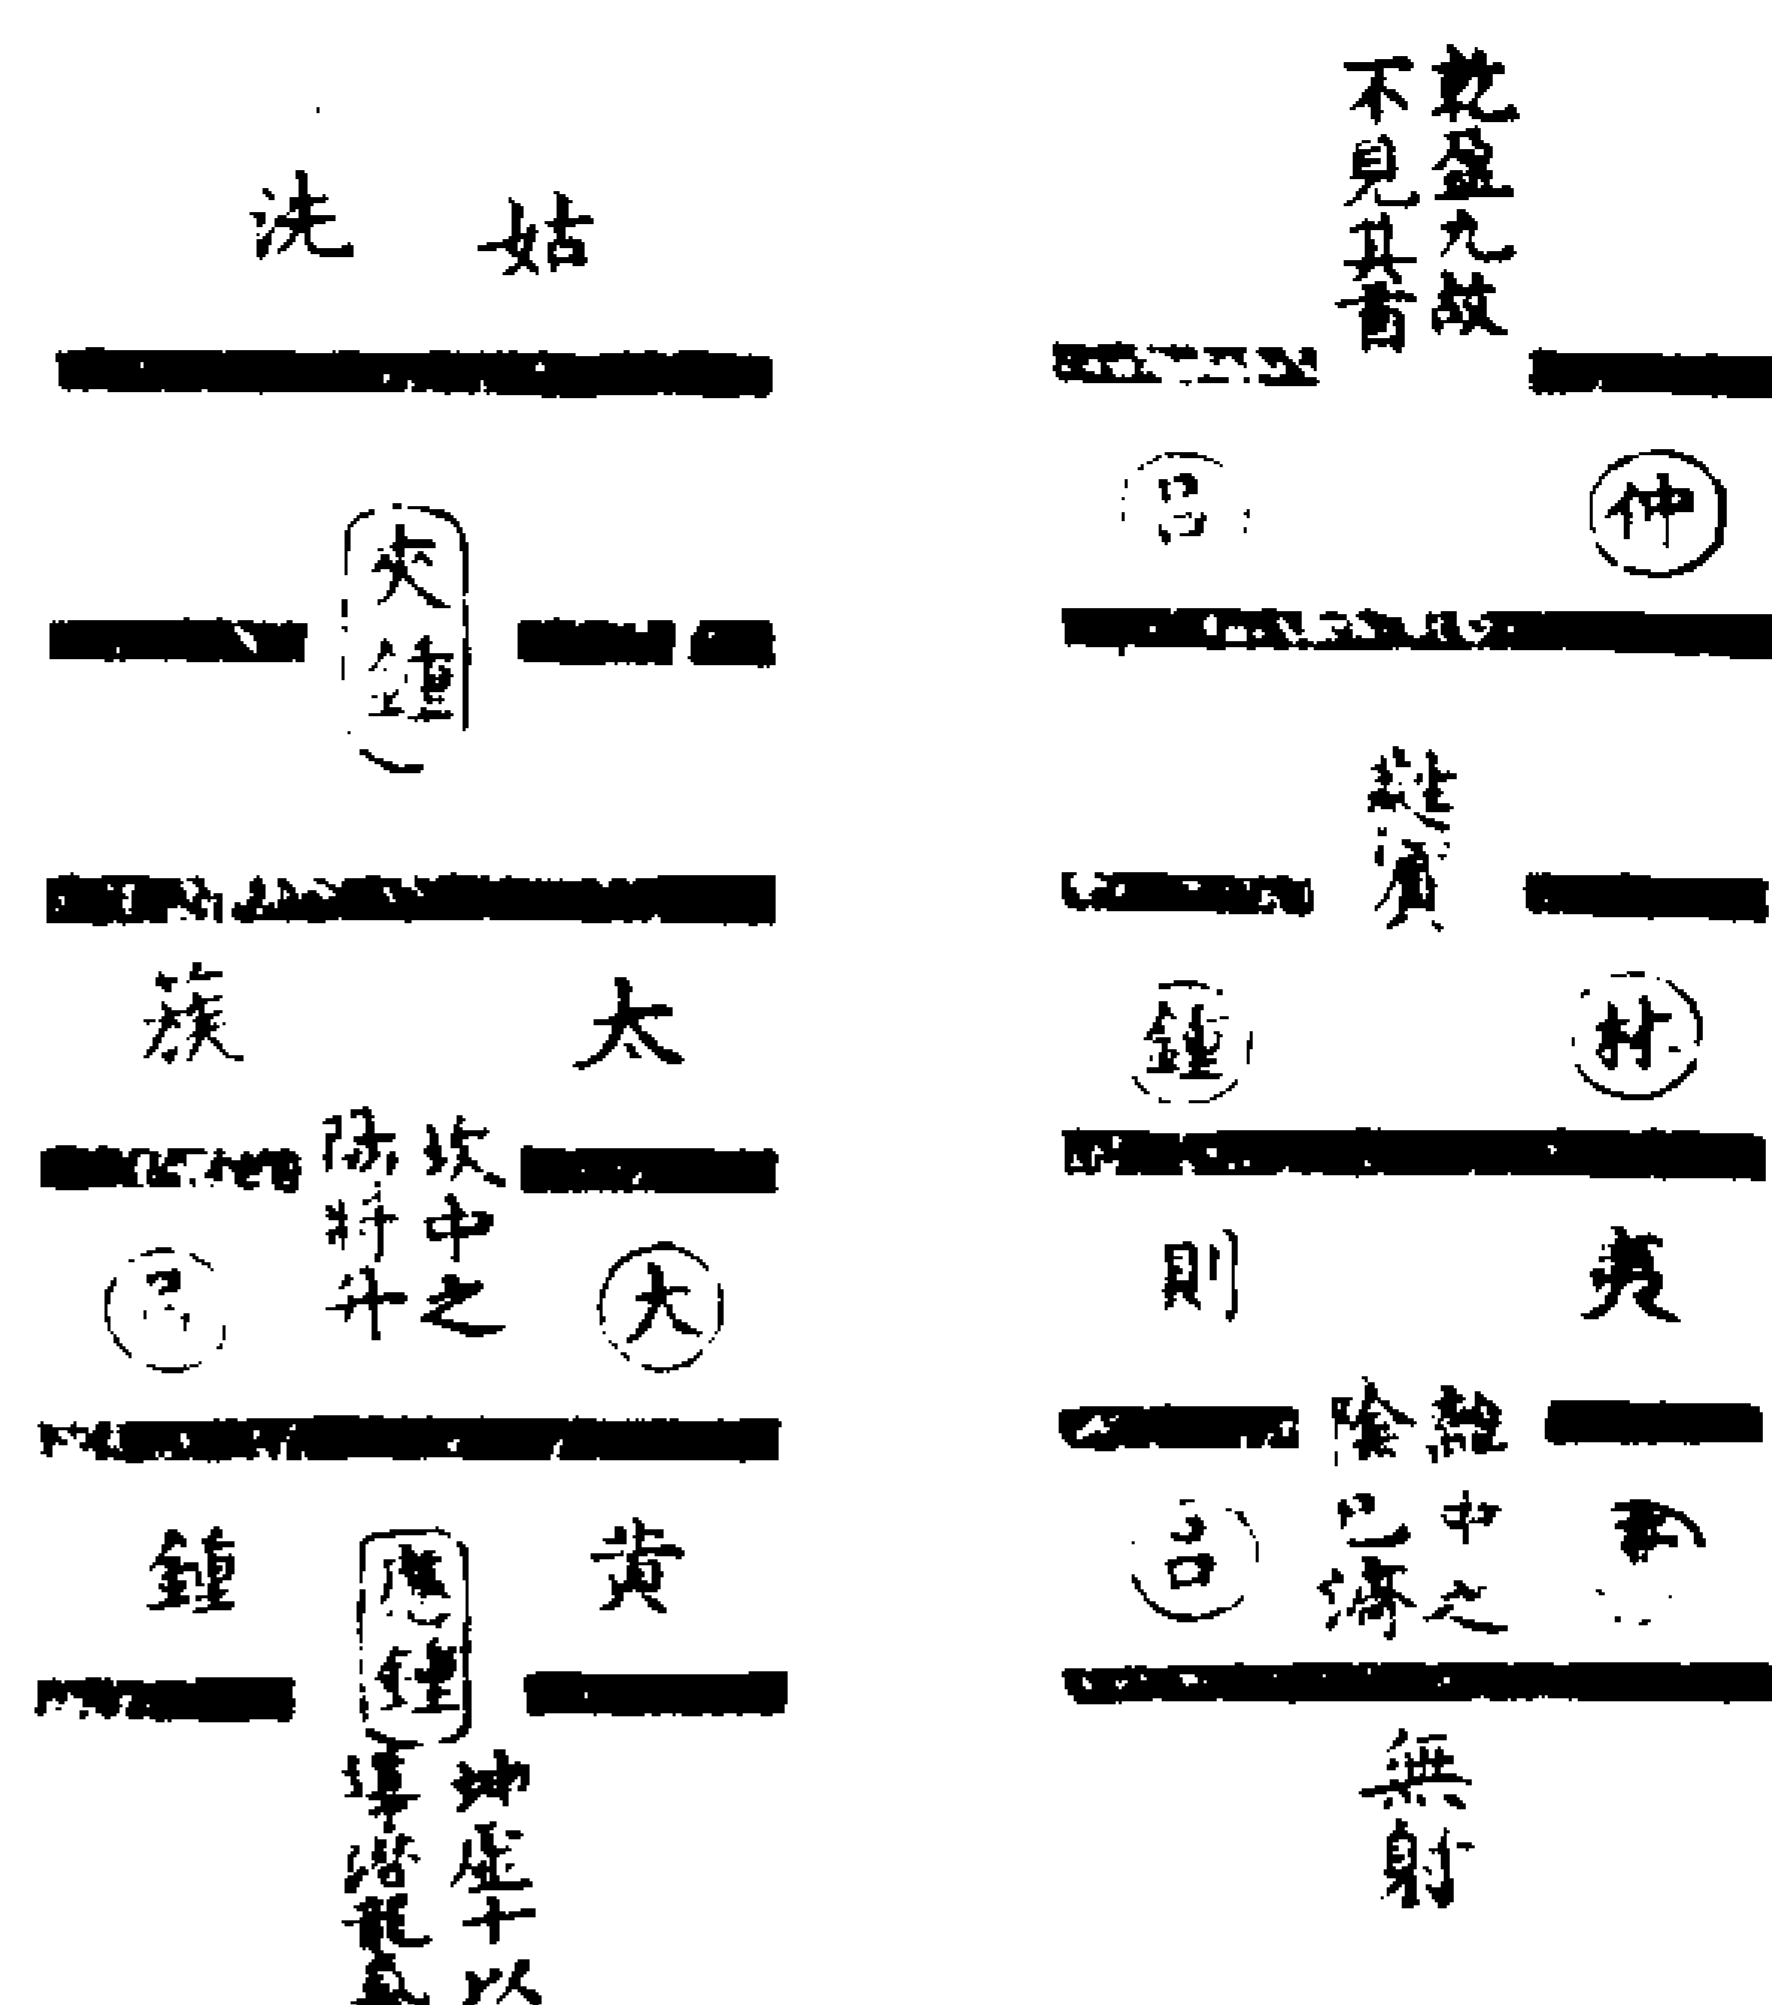 乾盈九故
不見其首
仲呂
蕤賓
林鍾
夷則
離中之
陰已
呂
無射
姑洗
夾鍾
太蔟
坎中之
陽將升
大呂
黃鍾
應鍾
坤虛十以
潛龍